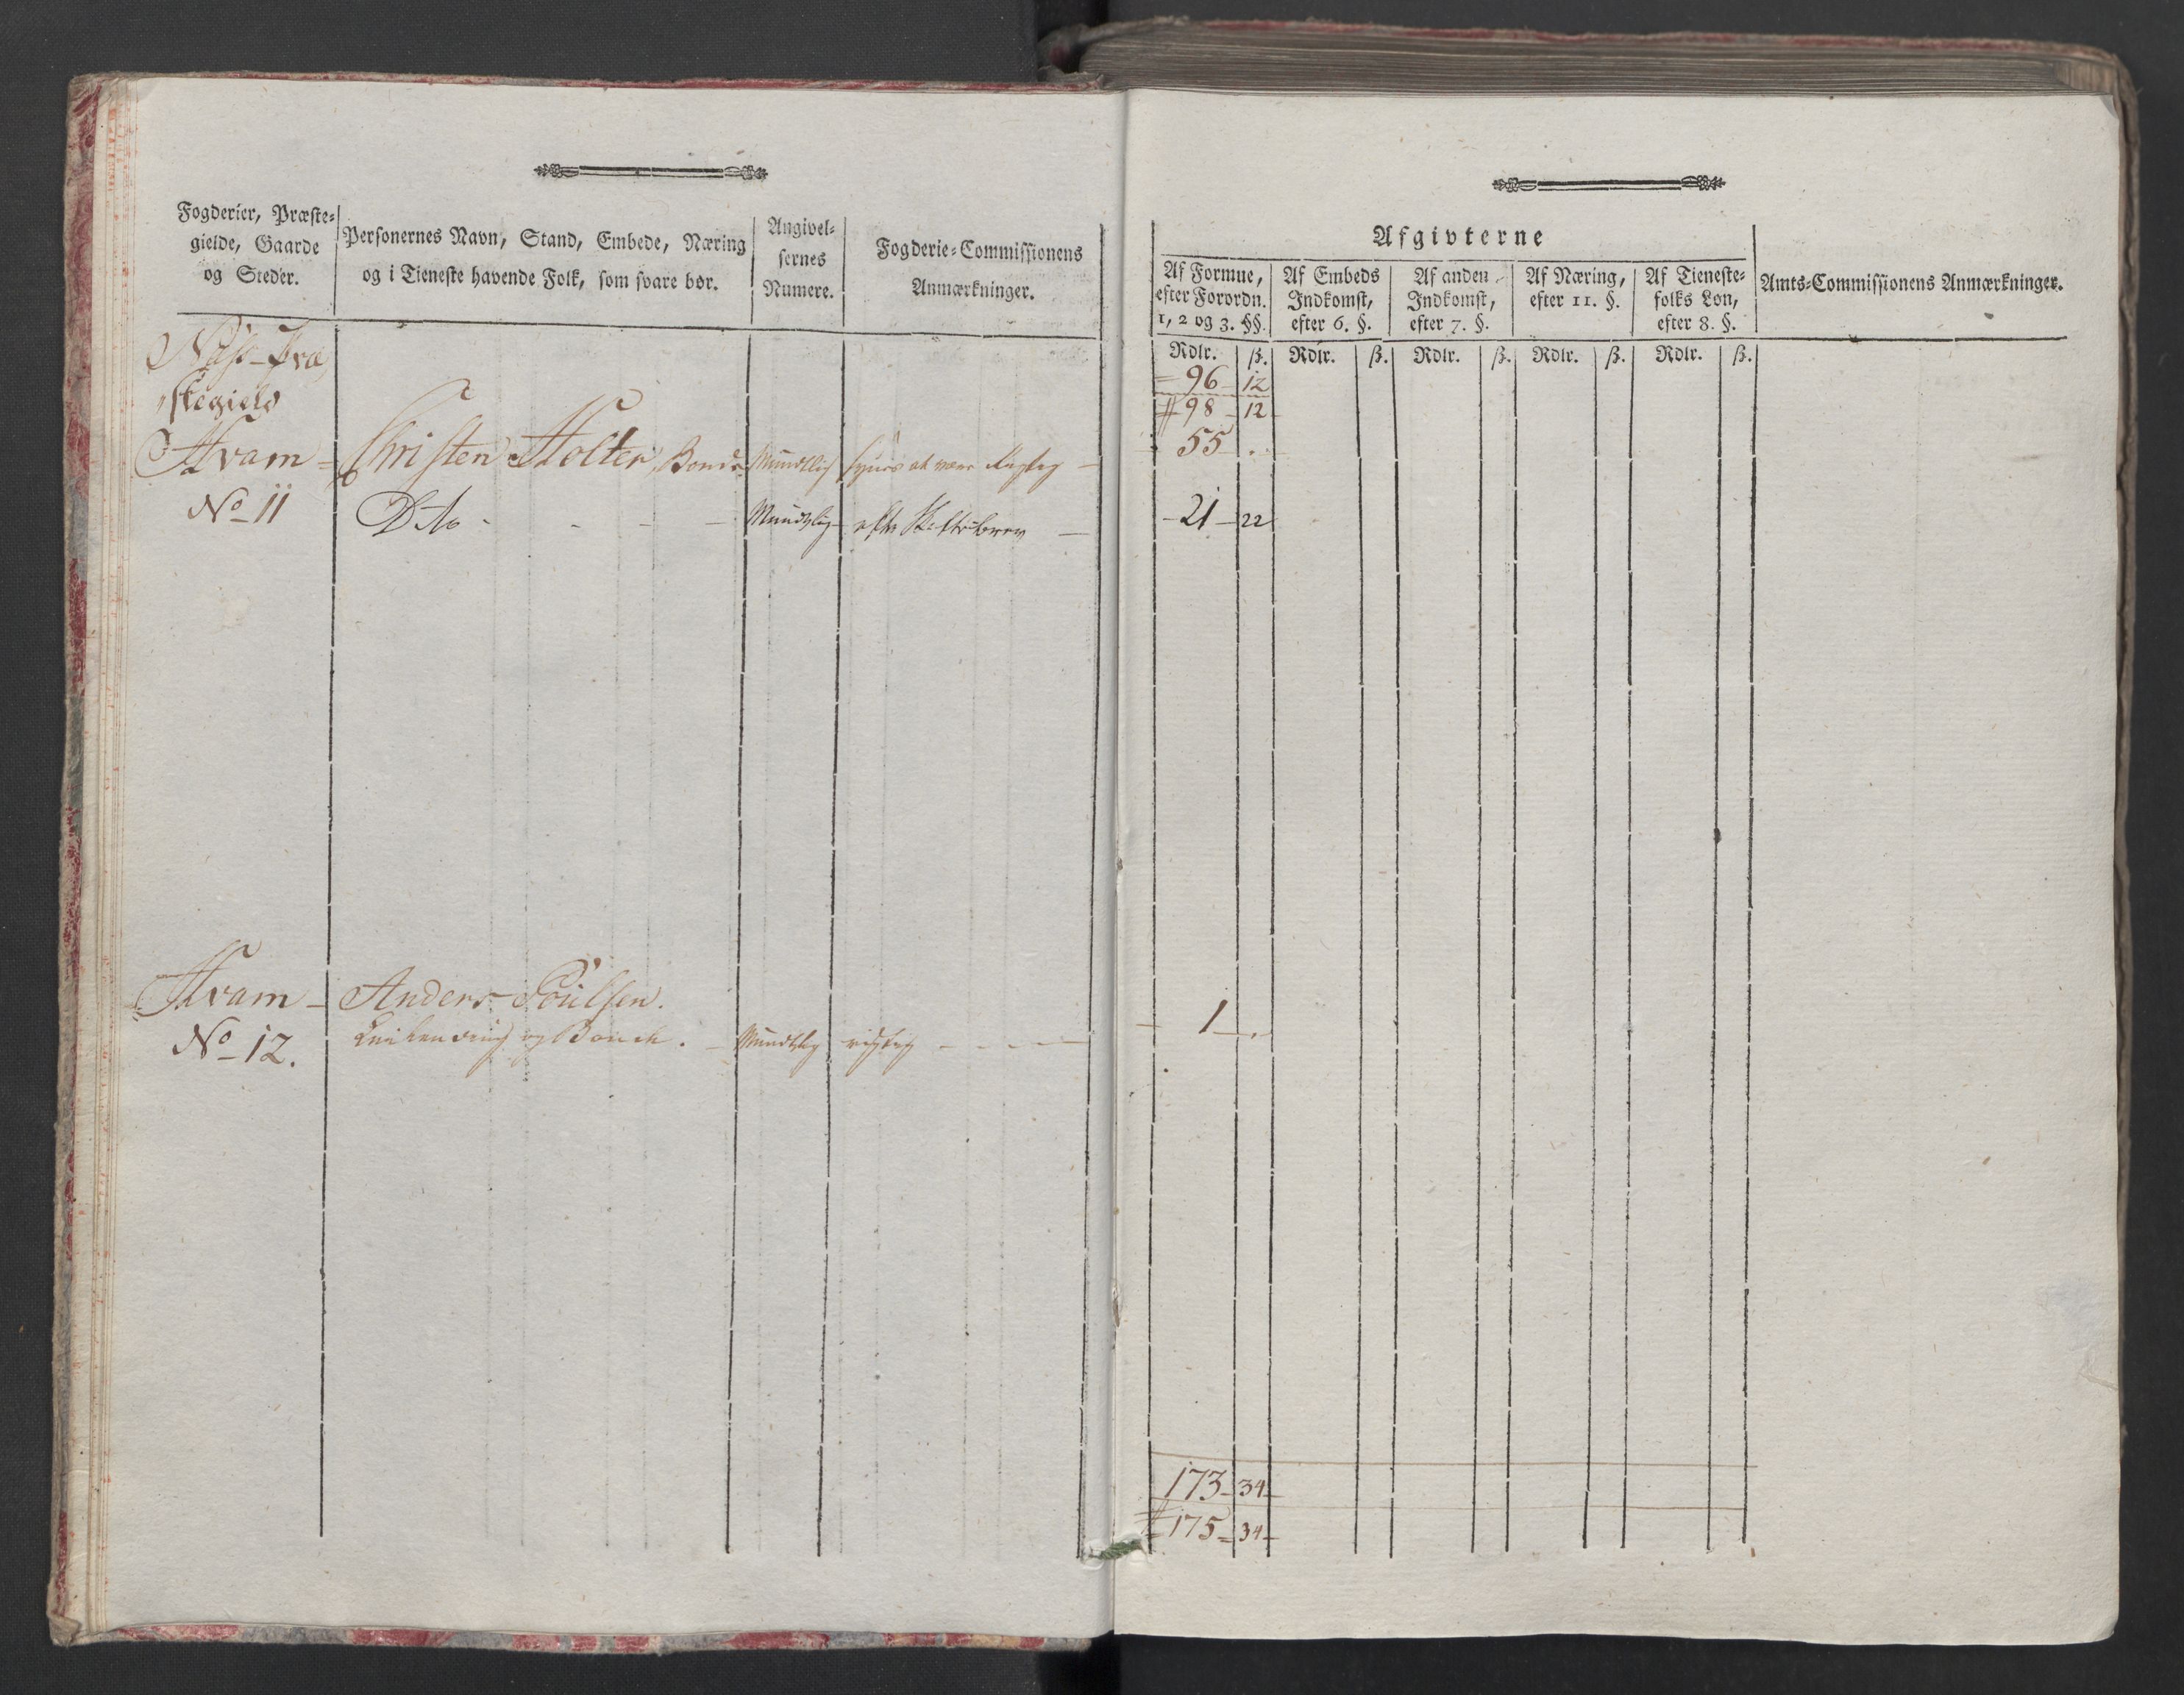 Fogderier, Præste-
gielde, Gaarde
og Steder.
Personernes Navn, Stand, Embede, Næring
og i Tieneste havende Folk, som svare bør.
Angivel-
sernes
Numere.
Fogderie-Commissionens
Anmærkninger.
Præ
stegield
Hvam = Christen Holter, Bonde Mundtlig synes at være rigtig —
No 11 Dito - - - — Mundtlig efter Skiftebrev —
Hvam — Anders Poulsen.
No 12. og Bonde. — Mundtlig rigtig — — — —
Afgivterne
Af Formue,
efter Forordn.
1, 2 og 3. §§.
Af Embeds
Indkomst,
efter 6. §.
Af anden
Indkomst,
efter 7. §.
Af Næring,
efter 11. §.
Af Tieneste-
folks Løn,
efter 8. §.
Amts-Commissionens Anmærkninger.
Rdlr. ß. Rdlr. ß. Rdlr. ß. Rdlr. ß. Rdlr. ß.
96 12
98 12
55 .
21 22
1 .
173 34
175 34